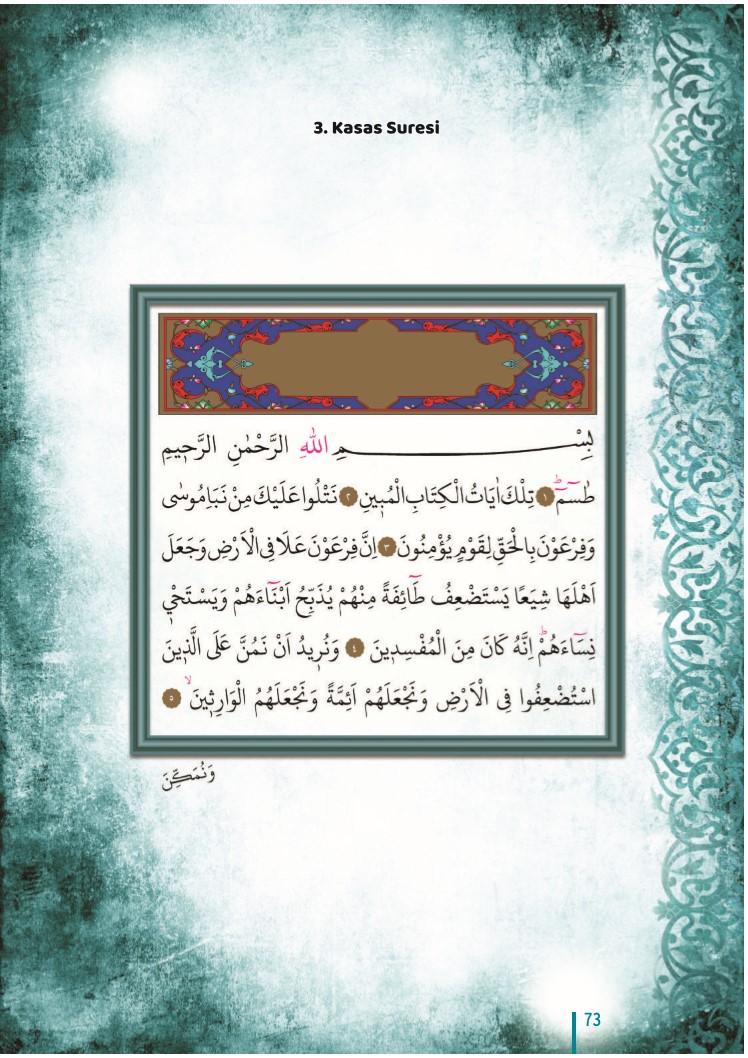 3. Kasas Suresi
بِسْمِ اللّٰهِ الرَّحْمٰنِ الرَّح۪يمِ
طٰسٓمٓۜ ﴿١﴾ تِلْكَ اٰيَاتُ الْكِتَابِ الْمُب۪ينِ ﴿٢﴾ نَتْلُوا عَلَيْكَ مِنْ نَبَاِ مُوسٰى
وَفِرْعَوْنَ بِالْحَقِّ لِقَوْمٍ يُؤْمِنُونَ ﴿٣﴾ اِنَّ فِرْعَوْنَ عَلَا فِي الْاَرْضِ وَجَعَلَ
اَهْلَهَا شِيَعًا يَسْتَضْعِفُ طَٓائِفَةً مِنْهُمْ يُذَبِّحُ اَبْنَٓاءَهُمْ وَيَسْتَحْي۪
نِسَٓاءَهُمْۜ اِنَّهُ كَانَ مِنَ الْمُفْسِد۪ينَ ﴿٤﴾ وَنُر۪يدُ اَنْ نَمُنَّ عَلَى الَّذ۪ينَ
اسْتُضْعِفُوا فِي الْاَرْضِ وَنَجْعَلَهُمْ اَئِمَّةً وَنَجْعَلَهُمُ الْوَارِث۪ينَۙ ﴿٥﴾
وَنُمَكِّنَ
73